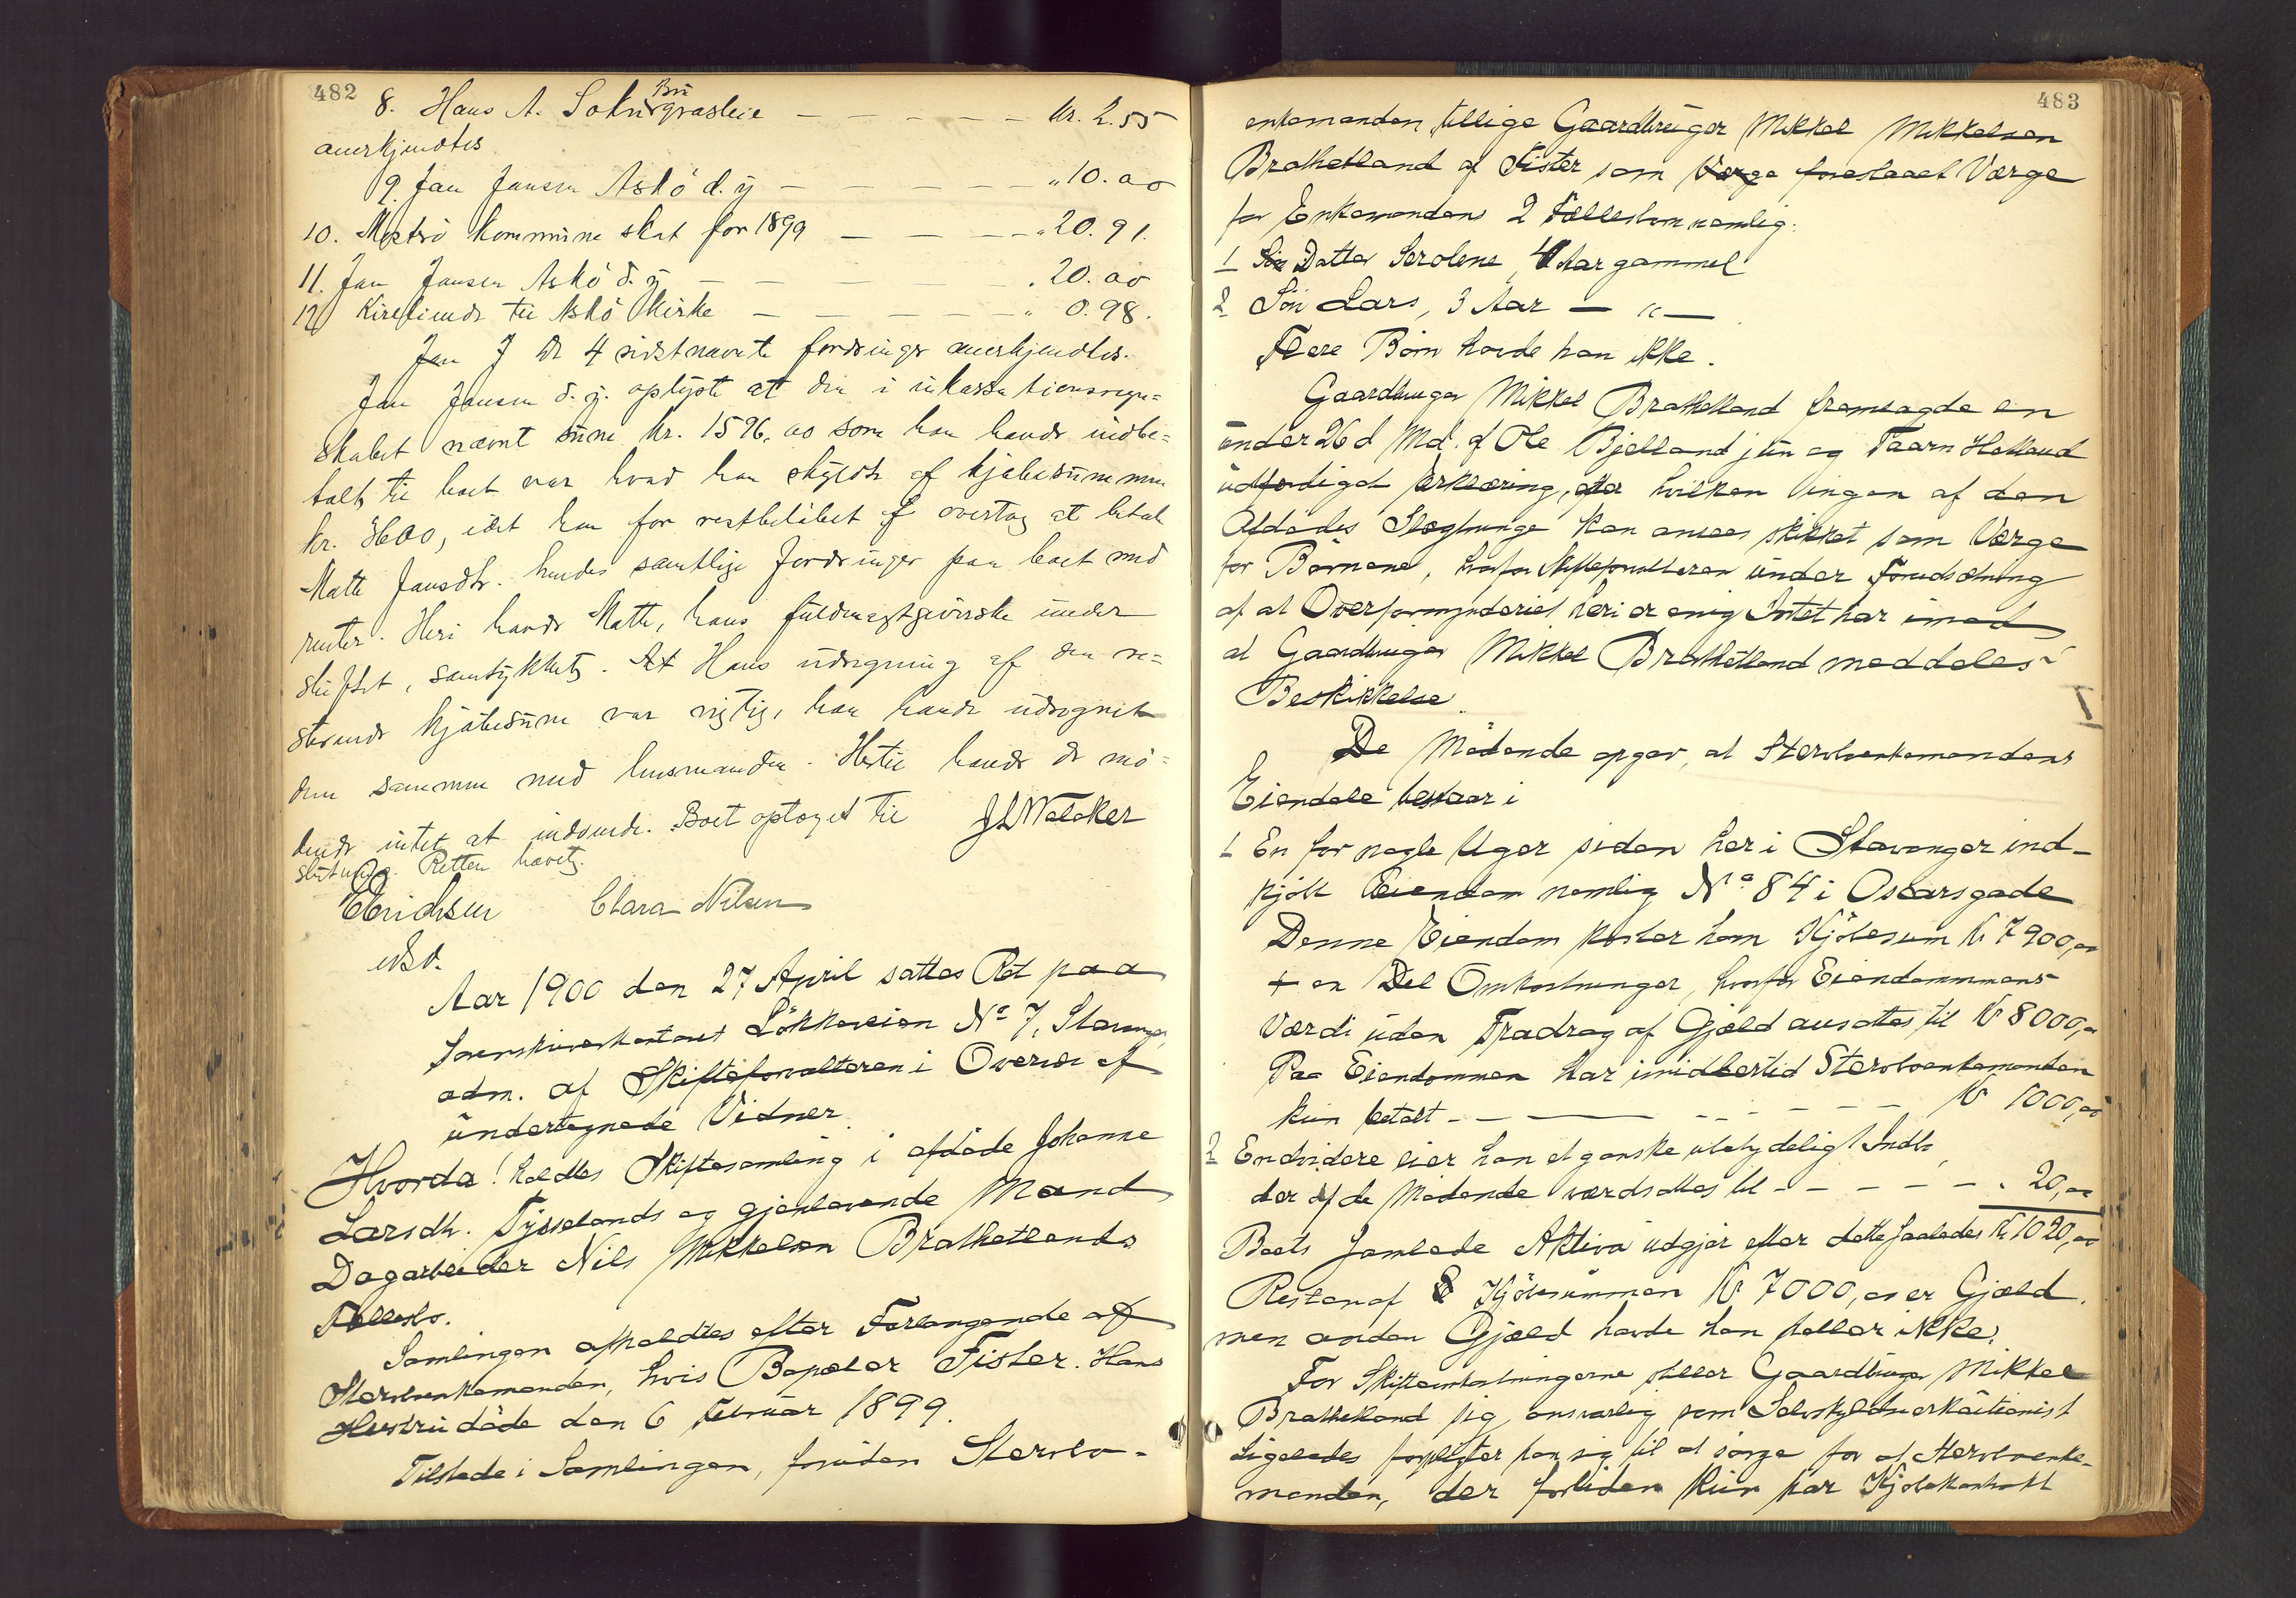 482
8. Hans A. Sokn Bu græsleie — — — — — Kr. 2.55
anerkjendtes
9. Jan Jansen Askö d. y — — — — — " 10.00
10. Mosterö kommune skat for 1899 — — — — " 20.91.
11. Jan Jansen Askö d. y — — — — — " 20.00
12) til Askö Kirke — — — — — " 0.98.
De 4 sidstnævnte fordringer anerkjendtes.
Jan Jansen d. y. oplyste at den i inkassationsregn=
skabet nævnt sum kr. 1596,00 som han havde indbe=
talt til boet var hvad han skyldte af kjöbesummen
kr. 3600, idet han for restbelöbet overtog at betale
Malte Jansdtr. hendes samtlige fordringer paa boet med
renter. Heri havde Malte, hans fuldmægtgiverske under
skiftet, samtykket. At Hans udregning af den re=
sterende kjöbesum var rigtig, han havde udregnet
den sammen med lensmanden. Hertil havde de mö=
dende intet at indvende. Boet optoges til
slutning. Retten hævet.
J L Walaker
Erichsen Clara Nilsen
cst.
Aar 1900 den 27 April sattes Ret paa
Sorenskriverkontoret Lökkeveien No 7, Stavanger,
adm. af Skifteforvalteren i Overvær af
undertegnede Vidner.
Hvorda! holdtes Skiftesamling i afdöde Johanne
Larsdtr. Tysselands og gjenlevende Mand
Dagarbeider Nils Mikkelsen Brathetlands
Fællesbo.
Samlingen afholdtes efter Forlangende af
Stervboenkemanden, hvis Bopæl er Fister. Hans
Hustru döde den 6 Februar 1899.
Tilstede i Samlingen, foruden Stervbo-
483
enkemanden tillige Gaardbruger Mikkel Mikkelsen
Brathetland af Fister som foreslaaet Værge
for Enkemandens 2 Fællesbørn nemlig:
1 Datter Serolene, 4 Aar gammel
2 Sön Lars, 3 Aar — " —
Flere Börn havde han ikke.
Gaardbruger Mikkel Brathetland fremlagde en
under 26 d Md. af Ole Bjelland jun og Taarn Helland
udfærdiget Erklæring, efter hvilken ingen af den
Afdødes Slægtninge kan ansees skikket som Værge
for Börnene, hvorfor Skifteforvalteren under Forudsætning
af at Overformynderiet heri er enig Intet har imod
at Gaardbruger Mikkel Brathetland meddeles
Beskikkelse.
De Mödende opgav, at Stervboenkemandens
Eiendele bestaar i
1 En for nogle Uger siden her i Stavanger ind-
kjöbt Eiendom nemlig No 84 i Oscarsgade
Denne Eiendom koster ham Kjöbesum Kr 7900,00
+ en Del Omkostninger, hvorfor Eiendommens
Værdi uden Fradrag af Gjæld ansattes til Kr 8000,00
Paa Eiendommen har imidlertid Stervboenkemanden
kun betalt — — — — — — Kr 1000,00
2 Endvidere eier han et ganske ubetydeligt Indbo,
der af de Mødende værdsattes til — — — — — " 20,00
Boets samlede Aktiva udgjør efter dette saaledes Kr 1020,00
Resten af Kjöbesummen Kr 7000,00 er Gjæld.
men anden Gjæld havde han heller ikke.
For Skifteomkostningerne stiller Gaardbruger Mikkel
Brathetland sig ansvarlig som Selvskyldnerkautionist
Ligeledes forpligter han sig til at sörge for at Stervboenke-
manden, der forliden kun har Kjöbekontrakt